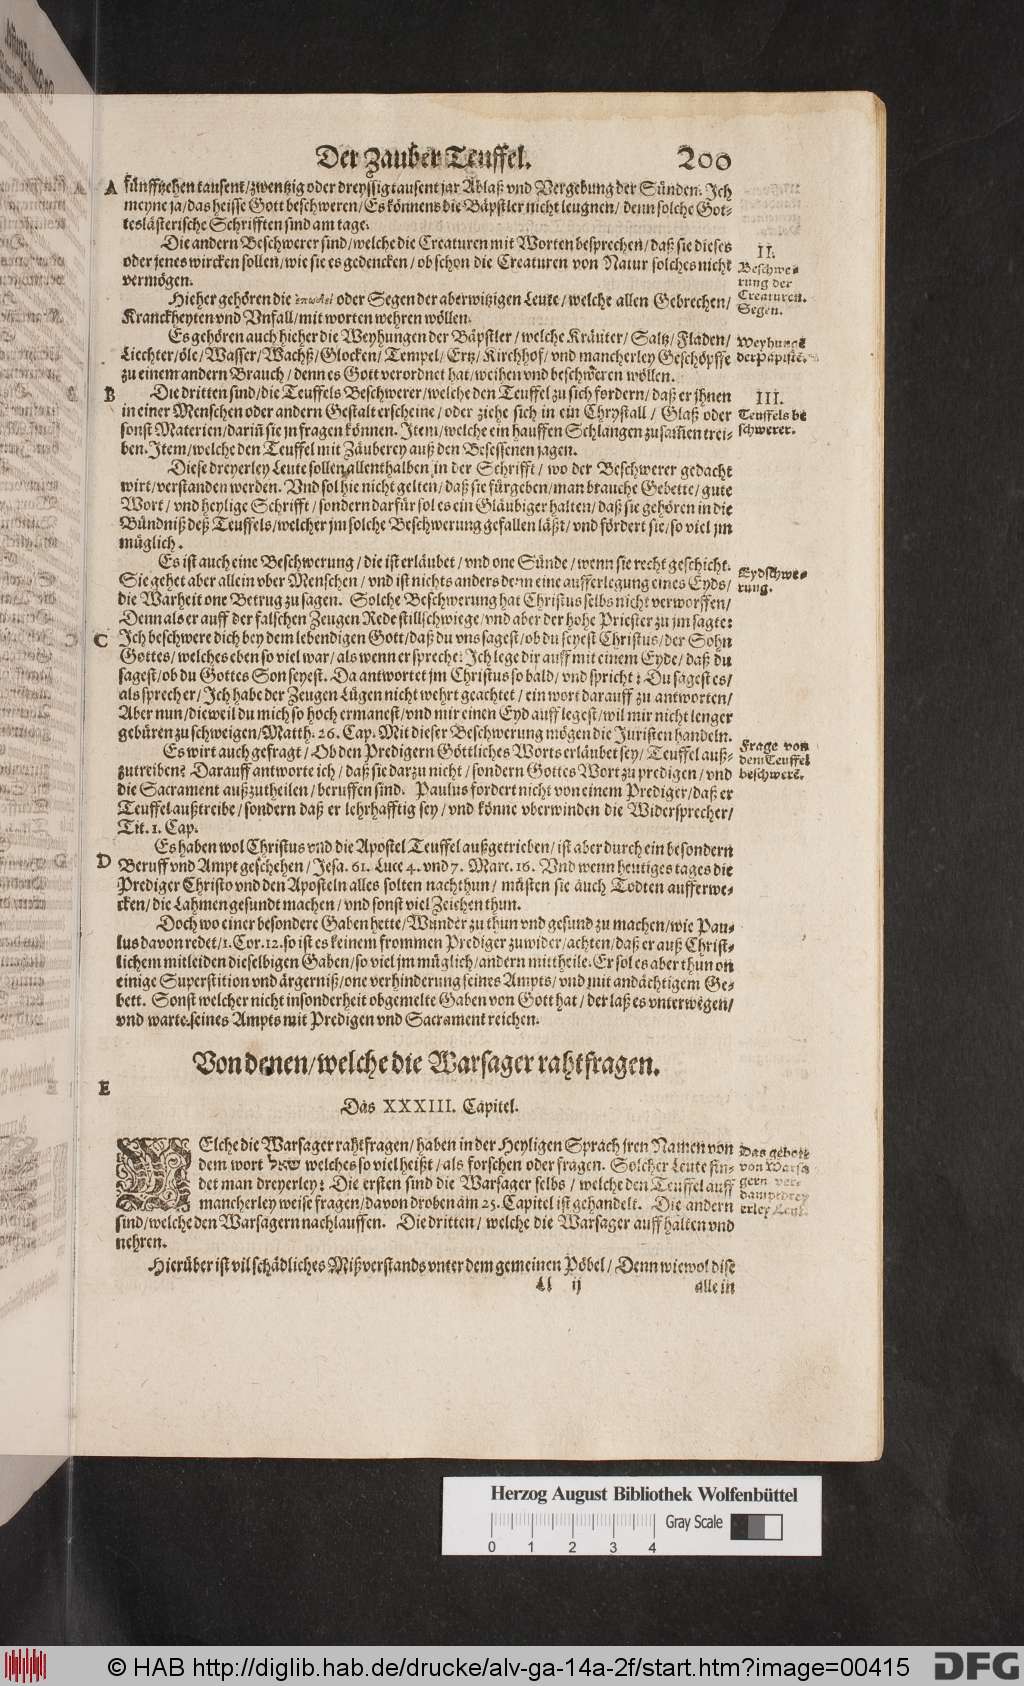 Der Zauber Teuffel. 200
A fünffzehen tausent/zwentzig oder dreyssig tausent jar Ablaß vnd Vergebung der Sünden. Ich
meyne ja/das heisse Gott beschweren/Es könnens die Bäpstler nicht leugnen/denn solche Got-
teslästerische Schrifften sind am tage.
Die andern Beschwerer sind/welche die Creaturen mit Worten besprechen/daß sie dieses
oder jenes wircken sollen/wie sie es gedencken/ob schon die Creaturen von Natur solches nicht
vermögen.
II.
Beschwe-
rung der
Creaturen.
Segen.
Hieher gehören die oder Segen der aberwitzigen Leute/welche allen Gebrechen/
Kranckheyten vnd Vnfall/mit worten wehren wöllen.
Es gehören auch hieher die Weyhungen der Bäpstler/welche Kräuter/Saltz/Fladen/
Liechter/öle/Wasser/Wachß/Glocken/Tempel/Ertz/Kirchhof/vnd mancherley Geschöpffe
zu einem andern Brauch/denn es Gott verordnet hat/weihen vnd beschweren wöllen.
Weyhung
der Papistē.
B Die dritten sind/die Teuffels Beschwerer/welche den Teuffel zu sich fordern/daß er jhnen
in einer Menschen oder andern Gestalt erscheine/oder ziehe sich in ein Chrystall/Glaß oder
sonst Materien/dariñ sie jn fragen können. Item/welche ein hauffen Schlangen zusam̃en trei-
ben. Item/welche den Teuffel mit Zäuberey auß den Besessenen jagen.
III.
Teuffels be
schwerer.
Diese dreyerley Leute sollen allenthalben in der Schrifft/wo der Beschwerer gedacht
wirt/verstanden werden. Vnd sol hie nicht gelten/daß sie fürgeben/man brauche Gebette/gute
Wort/vnd heylige Schrifft/sondern darfür sol es ein Gläubiger halten/daß sie gehören in die
Bündniß deß Teuffels/welcher jm solche Beschwerung gefallen läßt/vnd fördert sie/so viel jm
müglich.
Es ist auch eine Beschwerung/die ist erläubet/vnd one Sünde/wenn sie recht geschicht.
Sie gehet aber allein vber Menschen/vnd ist nichts anders denn eine aufferlegung eines Eyds/
die Warheit one Betrug zu sagen. Solche Beschwerung hat Christus selbs nicht verworffen/
Denn als er auff der falschen Zeugen Rede stillschwiege/vnd aber der hohe Priester zu jm sagte:
C Ich beschwere dich bey dem lebendigen Gott/daß du vns sagest/ob du seyest Christus/der Sohn
Gottes/welches eben so viel war/als wenn er spreche: Ich lege dir auff mit einem Eyde/daß du
sagest/ob du Gottes Son seyest. Da antwortet jm Christus so bald/vnd spricht: Du sagest es/
als sprech er/Ich habe der Zeugen Lügen nicht wehrt geachtet/ein wort darauff zu antworten/
Aber nun/dieweil du mich so hoch ermanest/vnd mir einen Eyd aufflegest/wil mir nicht lenger
gebüren zu schweigen/Matth. 26. Cap. Mit dieser Beschwerung mögen die Juristen handeln.
Eydschwe-
rung.
Es wirt auch gefragt/Ob den Predigern Göttliches Worts erläubet sey/Teuffel auß-
zutreiben? Darauff antworte ich/daß sie darzu nicht/sondern Gottes Wort zu predigen/vnd
die Sacrament außzutheilen/beruffen sind. Paulus fordert nicht von einem Prediger/daß er
Teuffel außtreibe/sondern daß er lehrhafftig sey/vnd könne vberwinden die Widersprecher/
Tit. 1. Cap.
Frage von
dem Teuffel
beschwerē.
Es haben wol Christus vnd die Apostel Teuffel außgetrieben/ist aber durch ein besondern
D Beruff vnd Ampt geschehen/Jesa. 61. Luce 4. vnd 7. Marc. 16. Vnd wenn heutiges tages die
Prediger Christo vnd den Aposteln alles solten nachthun/müsten sie auch Todten aufferwe-
cken/die Lahmen gesundt machen/vnd sonst viel Zeichen thun.
Doch wo einer besondere Gaben hette/Wunder zu thun vnd gesund zu machen/wie Pau-
lus davon redet/1. Cor. 12. so ist es keinem frommen Prediger zuwider/achten/daß er auß Christ-
lichem mitleiden dieselbigen Gaben/so viel jm müglich/andern mittheile. Er sol es aber thun on
einige Superstition vnd ärgerniß/one verhinderung seines Ampts/vnd mit andächtigem Ge-
bett. Sonst welcher nicht insonderheit obgemelte Gaben von Gott hat/der laß es vnterwegen/
vnd warte seines Ampts mit Predigen vnd Sacrament reichen.
Von denen/welche die Warsager rahtfragen.
E
Das XXXIII. Capitel.
WElche die Warsager rahtfragen/haben in der Heyligen Sprach jren Namen von
dem wort שאל welches so viel heißt/als forschen oder fragen. Solcher Leute fin-
det man dreyerley: Die ersten sind die Warsager selbs/welche den Teuffel auff
mancherley weise fragen/davon droben am 25. Capitel ist gehandelt. Die andern
sind/welche den Warsagern nachlauffen. Die dritten/welche die Warsager auffhalten vnd
nehren.
Das gebott
von Warsa
gern ver-
dampt drey
erley Leut.
Hierüber ist vil schädliches Mißverstands vnter dem gemeinen Pöbel/Denn wiewol dise
Ll ij allein
Herzog August Bibliothek Wolfenbüttel
Gray Scale
0 1 2 3 4
© HAB http://diglib.hab.de/drucke/alv-ga-14a-2f/start.htm?image=00415
DFG